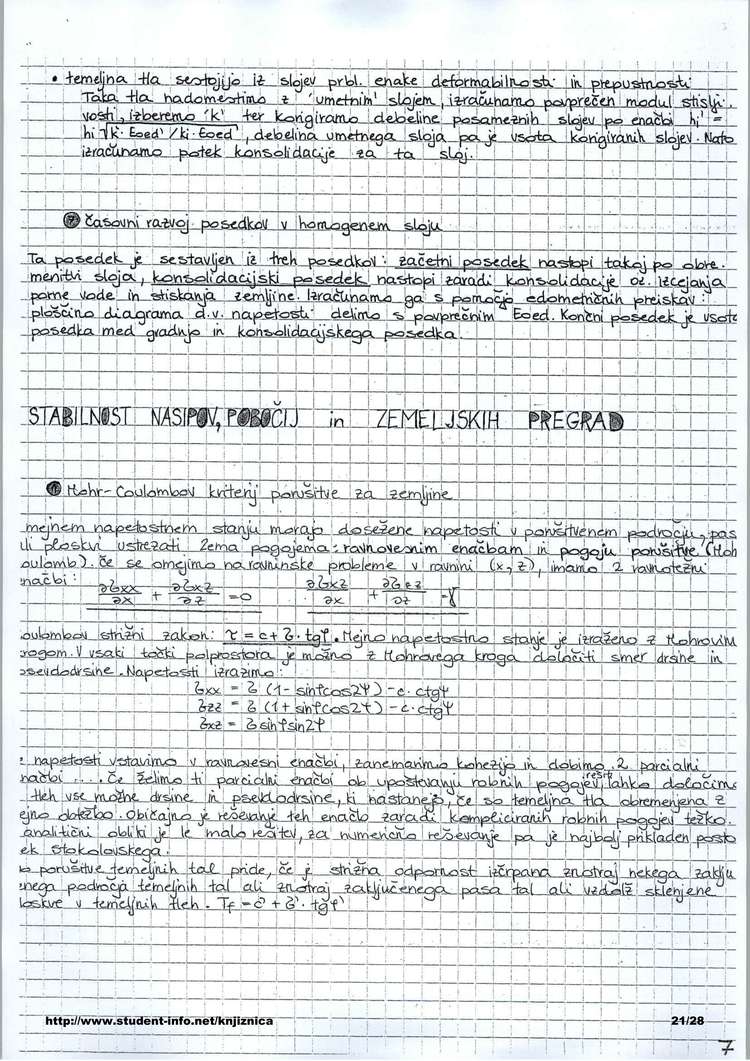 • temeljna tla sestojijo iz slojev prbl. enake deformabilnosti in prepustnosti
Taka tla nadomestimo z 'umetnim' slojem, izračunamo povprečen modul stislji.
vosti, izberemo 'k' ter korigiramo debeline posameznih slojev po enačbi hi' =
hi √k·Eoed'/ki·Eoed', debelina umetnega sloja pa je vsota korigiranih slojev. Nato
izračunamo potek konsolidacije za ta sloj.
⑦ časovni razvoj posedkov v homogenem sloju
Ta posedek je sestavljen iz treh posedkov: začetni posedek nastopi takoj po obre.
menitvi sloja, konsolidacijski posedek nastopi zaradi konsolidacije oz. izcejanja
porne vode in stiskanja zemljine. Izračunamo ga s pomočjo edometričnih preiskav:
ploščino diagrama d.v. napetosti delimo s povprečnim Eoed. Končni posedek je vsota
posedka med gradnjo in konsolidacijskega posedka.
STABILNOST NASIPOV, POBOČIJ in ZEMELJSKIH PREGRAD
① Mohr-Coulombov kriterij porušitve za zemljine
mejnem napetostnem stanju morajo dosežene napetosti v porušitvenem področju, pas
li ploskvi ustrezati 2ema pogojema: ravnovesnim enačbam in pogoju porušitve (Moh
oulomb). če se omejimo na ravninske probleme v ravnini (x,z), imamo 2 ravnotežni
načbi: ∂σxx/∂x + ∂σxz/∂z = 0 ∂σxz/∂x + ∂σzz/∂z = γ
oulombov strižni zakon: τ = c + σ·tgφ. Mejno napetostno stanje je izraženo z Mohrovim
rogom. V vsaki točki polprostora je možno z Mohrovega kroga določiti smer drsine in
psevdodrsine. Napetosti izrazimo:
σxx = σ (1 - sinφcos2Ψ) - c·ctgφ
σzz = σ (1 + sinφcos2Ψ) - c·ctgφ
σxz = σ sinφsin2Ψ
e napetosti vstavimo v ravnovesni enačbi, zanemarimo kohezijo in dobimo 2 parcialni
načbi .... Če želimo ti parcialni enačbi ob upoštevanju robnih pogojev rešit, lahko določimo
tleh vse možne drsine in psevdodrsine, ki nastanejo, če so temeljna tla obremenjena z
ejno obtežbo. Običajno je reševanje teh enačb zaradi kompliciranih robnih pogojev težko.
analitični obliki je le malo rešitev, za numerično reševanje pa je najbolj prikladen posto
ek Stokolovskega.
o porušitve temeljnih tal pride, če je strižna odpornost izčrpana znotraj nekega zaklju
enega področja temeljnih tal ali znotraj zaključenega pasa tal ali vzdolž sklenjene
loskve v temeljnih tleh. Tf = c' + σ'·tgφ'
http://www.student-info.net/knjiznica 21/28
7